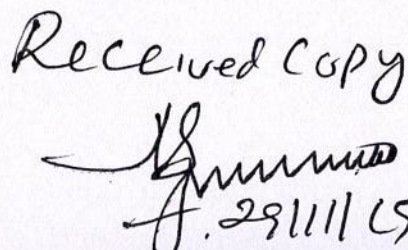 Received Copy
29/11/19